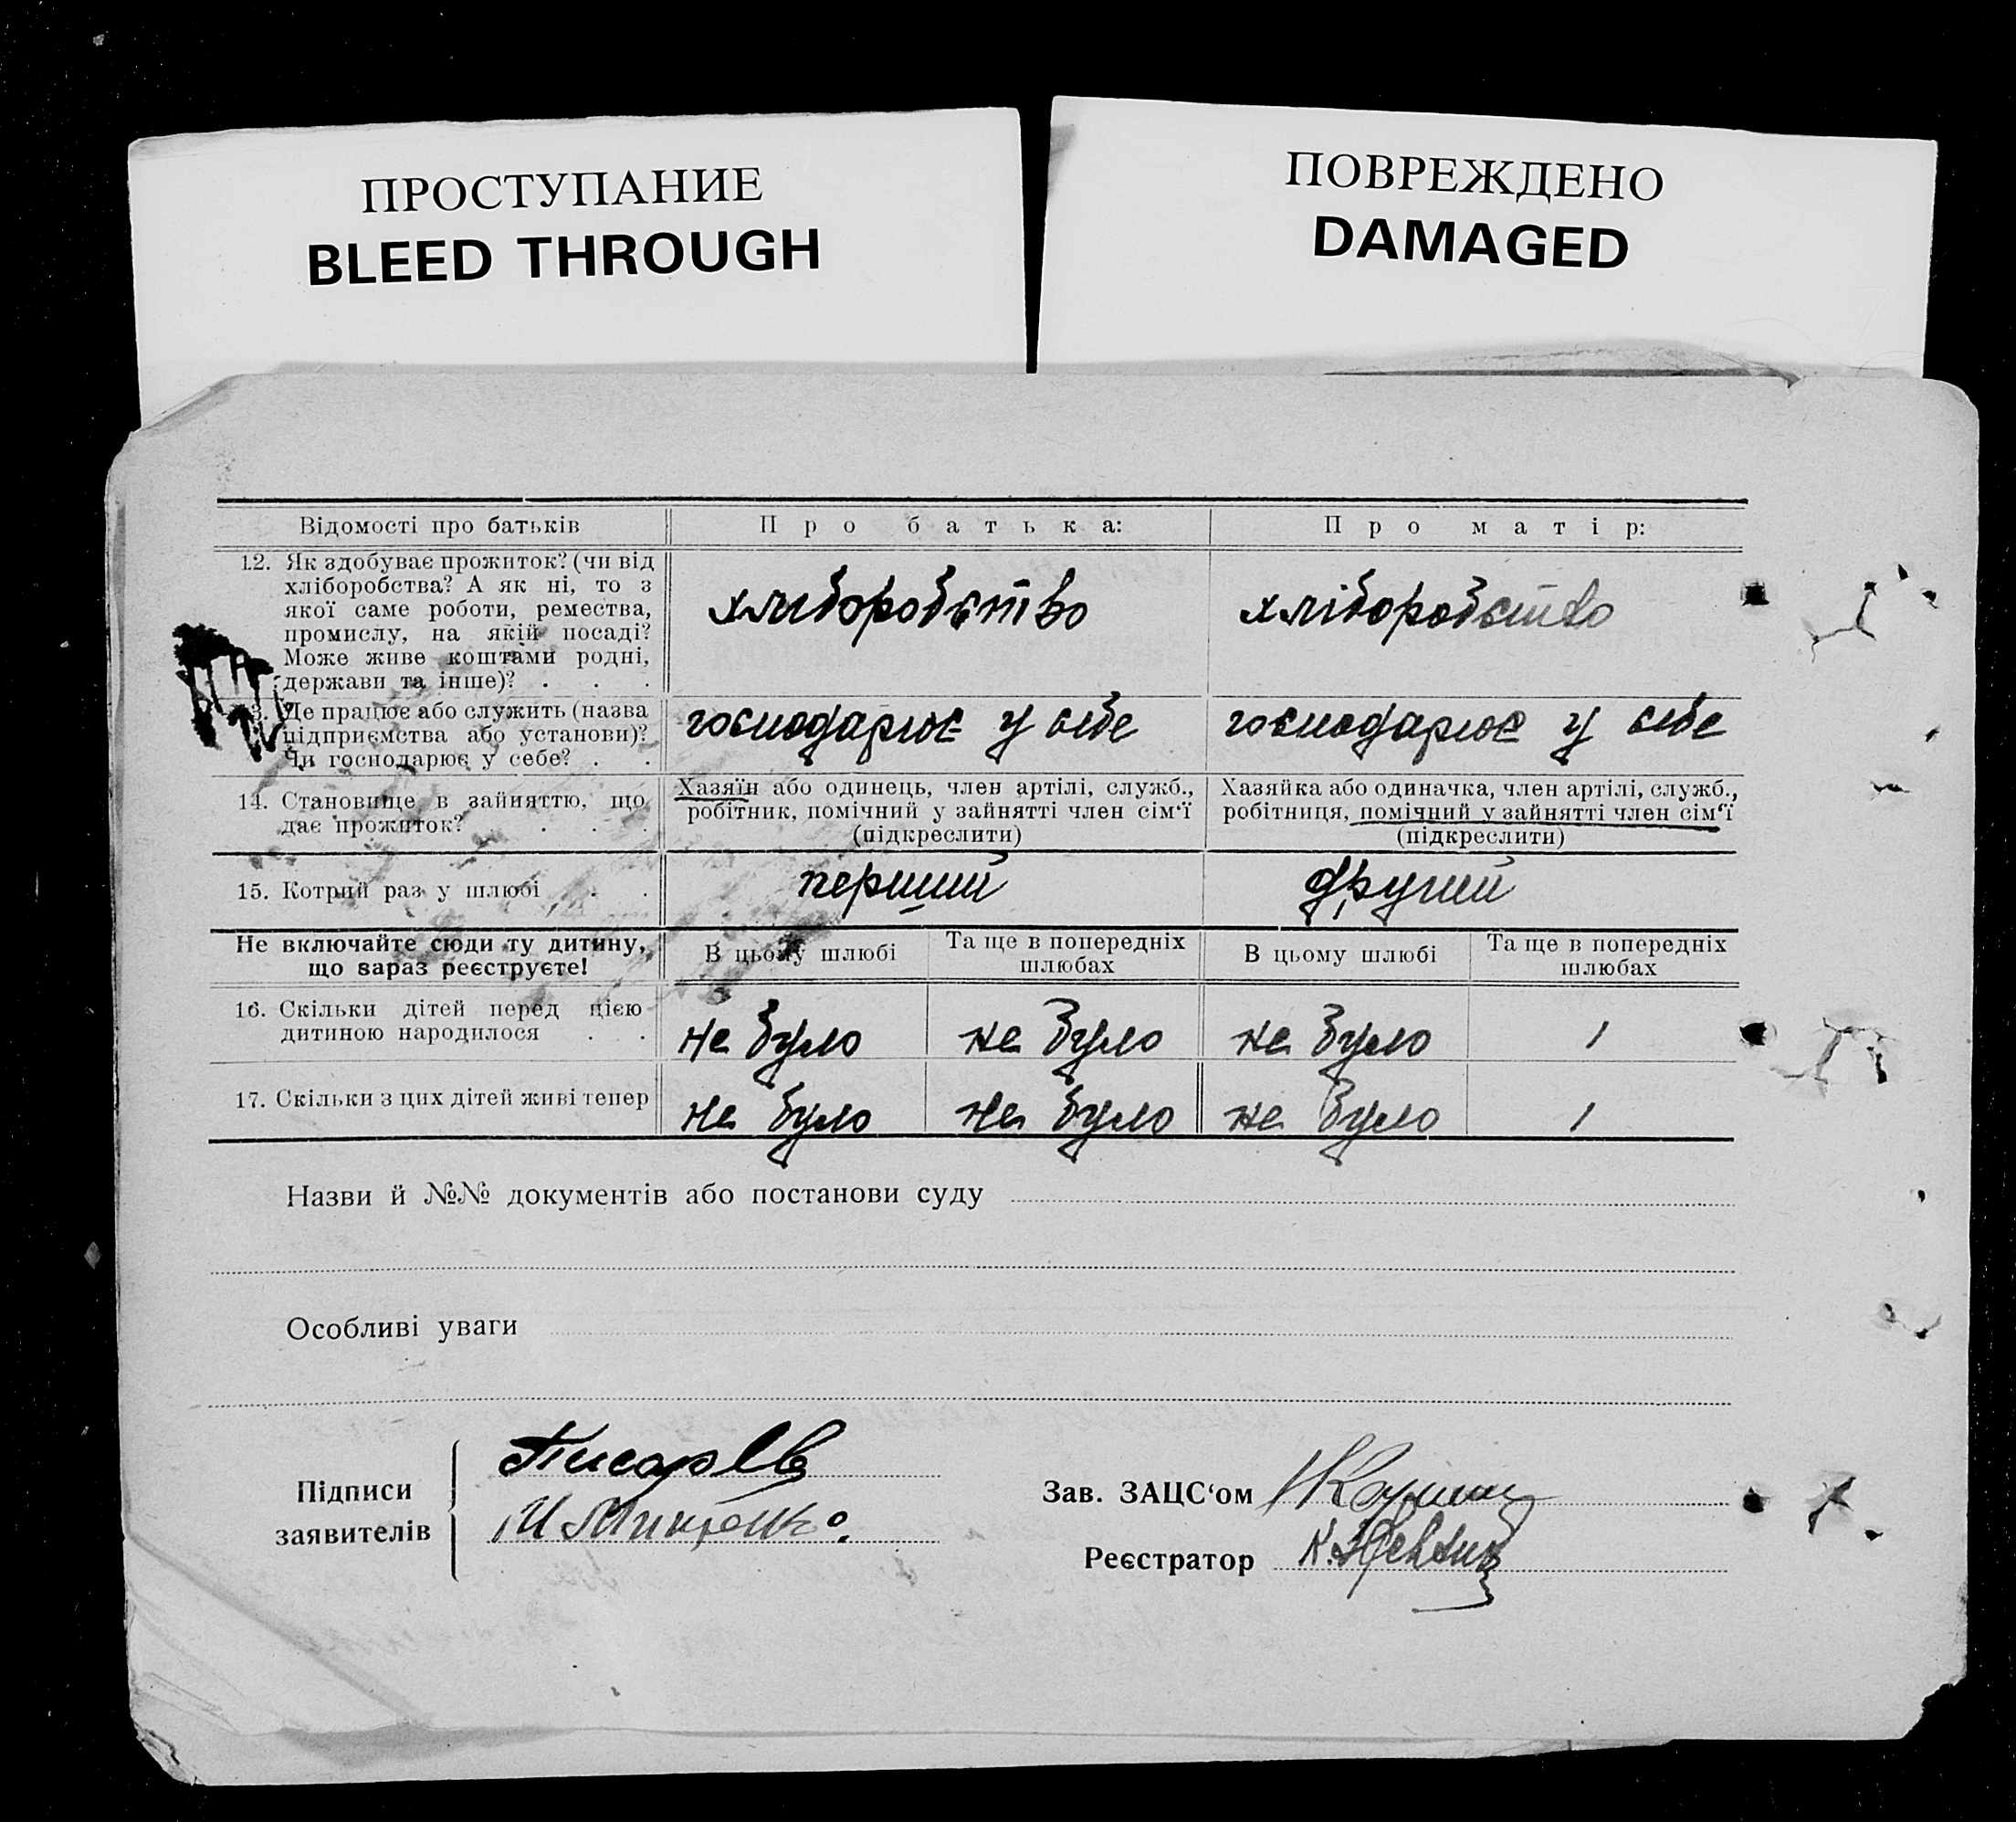 ПРОСТУПАНИЕ
BLEED THROUGH
ПОВРЕЖДЕНО
DAMAGED
Відомості про батьків
Про батька:
Про матір:
12. Як здобуває прожиток? (чи від
хліборобства? А як ні, то з
якої саме роботи, ремества,
промислу, на якій посаді?
Може живе коштами родні,
держави та інше)? . . .
хліборобство
хліборобство
Де працює або служить (назва
підприємства або установи)?
Чи господарює у себе? . .
господарює у себе
господарює у себе
14. Становище в зайняттю, що
дає прожиток? . . .
Хазяїн або одинець, член артілі, служб.,
робітник, помічний у зайнятті член сім‘ї
(підкреслити)
Хазяйка або одиначка, член артілі, служб.,
робітниця, помічний у зайнятті член сім‘ї
(підкреслити)
15. Котрий раз у шлюбі . .
перший
другий
Не включайте сюди ту дитину,
що зараз реєструєте!
В цьому шлюбі
Та ще в попередніх
шлюбах
В цьому шлюбі
Та ще в попередніх
шлюбах
16. Скільки дітей перед цією
дитиною народилося . .
не було
не було
не було
1
17. Скільки з цих дітей живі тепер
не було
не було
не було
1
Назви й №№ документів або постанови суду
Особливі уваги
Підписи
заявителів
Писарєв
Зав. ЗАЦС‘ом
Реєстратор